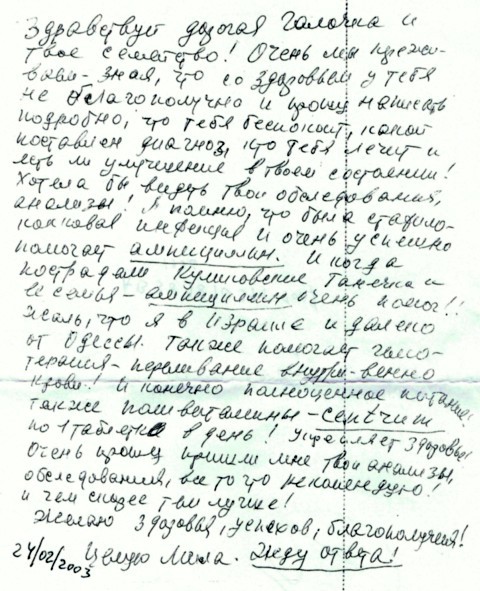 Здравствуй дорогая Галочка и
твое семейство! Очень мы пережи-
ваем - зная, что со здоровьем у тебя
не благополучно и прошу написать
подробно, что тебя беспокоит, какой
поставлен диагноз, кто тебя лечит и
есть ли улучшение в твоем состоянии!
Хотела бы видеть твои обследования,
анализы! Я помню, что была стафило-
кокковая инфекция и очень успешно
помогает ампициллин. И когда
пострадали Куликовские Танечка и
её семья - ампициллин очень помог!!
Жаль, что я в Израиле и далеко
от Одессы. Также помогает гемо-
терапия - переливание внутри-венно
крови! И конечно полноценное питание
также поливитамины - Сентчит
по 1 таблетке в день! Укрепляет здоровье!
Очень прошу пришли мне твои анализы,
обследования, все то что рекомендую!
и чем скорее тем лучше!
Желаю здоровья, успехов, благополучия!
24/02/2003 Целую Мила. Жду ответа!